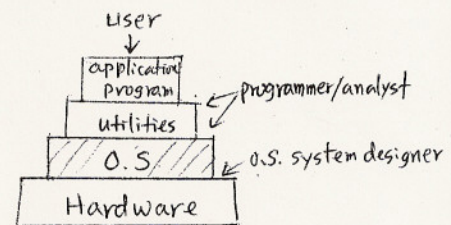 user
application
program
programmer/analyst
utilities
O.S
O.S. system designer
Hardware